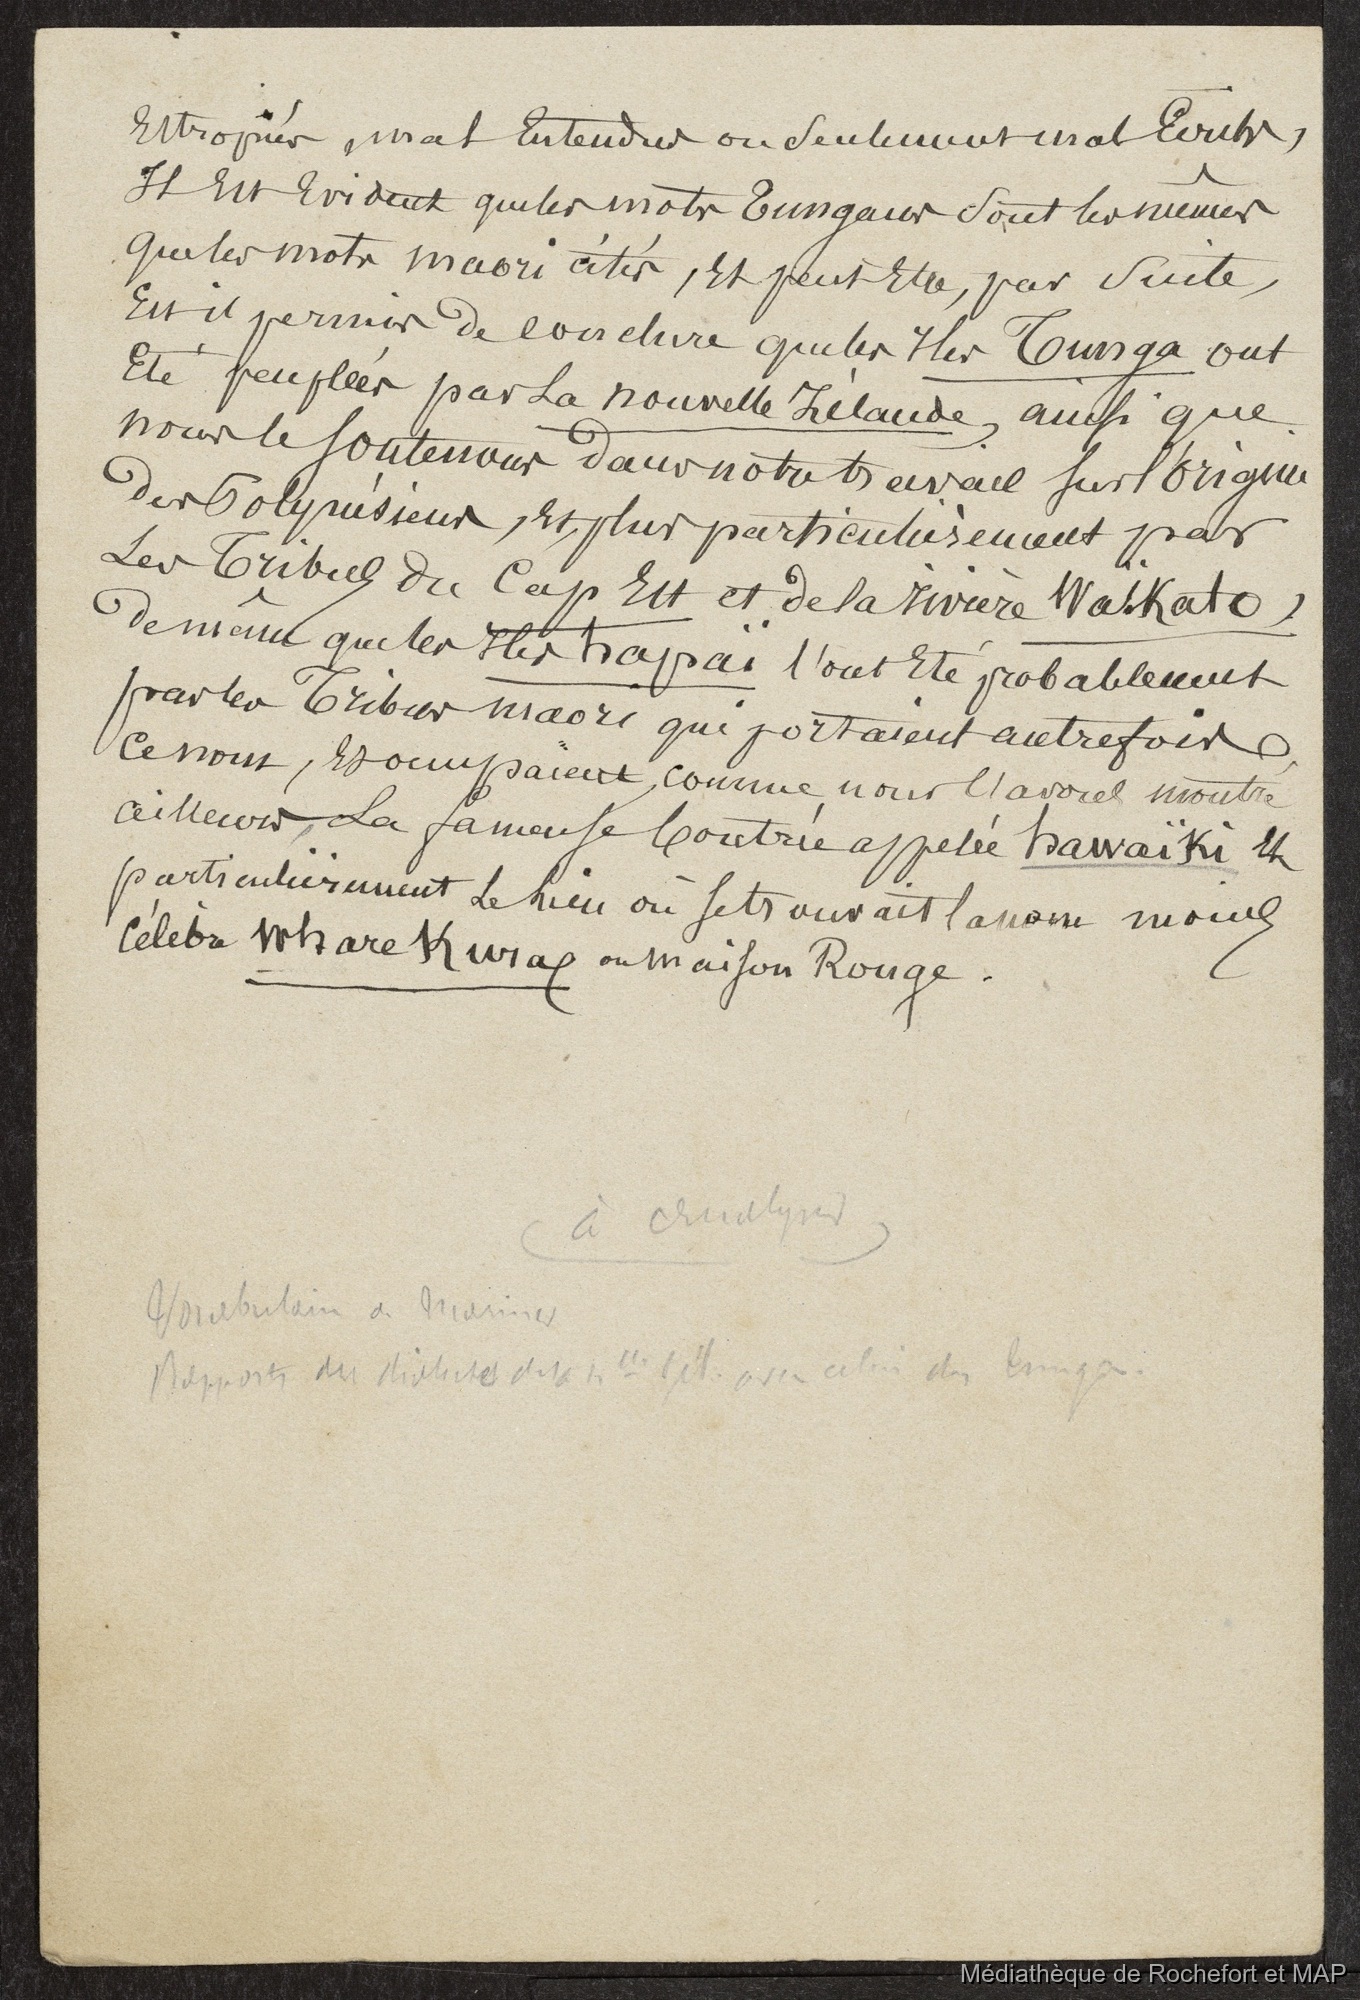 Estropiés, mal Entendus ou Seulement mal Ecrits,
Il Est Evident que les mots Tungans Sont les mêmes
que les mots maori cités, Et peut Etre, par Suite,
Est il permis de conclure que les Iles Tunga ont
Eté peuplées par La nouvelle Zélande, ainsi que
nous le soutenons dans notre travail sur l'origine
des Polynésiens, Et, plus particulièrement par
Les Tribus du Cap Est et de la rivière Waïkato,
de même que les Iles hapaï l'ont Eté probablement
par les Tribus maori qui portaient autrefois
ce nom, Et occupaient, comme nous l'avons montré
ailleurs, La fameuse Contrée appelée hawaïki Et
particulièrement Le lieu où se trouvait la non moins
Célèbre Whare Kura ou maison Rouge.
à analyser
Vocabulaire de Mariner
Rapports des dialectes de la nlle Zél. avec celui des Tunga.
Médiathèque de Rochefort et MAP